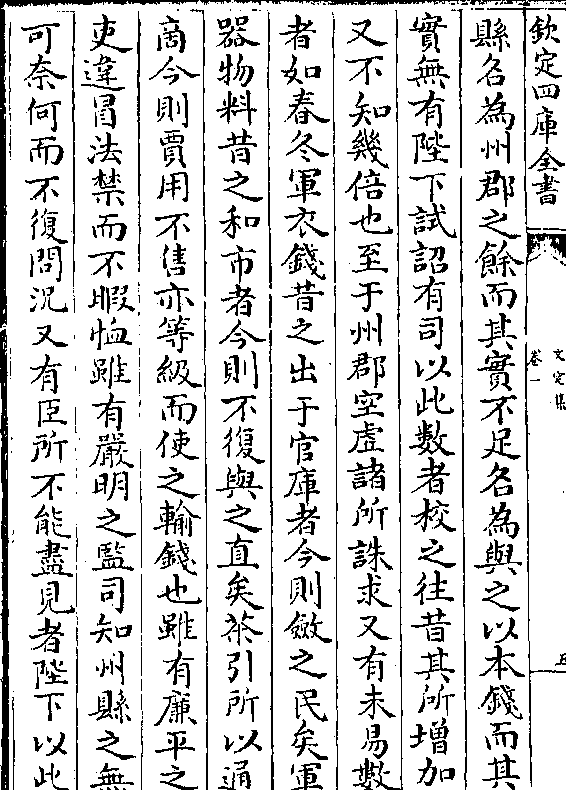 欽定四庫全書
文定集
卷一
五
縣名為州郡之餘而其實不足名為與之以本錢而其
實無有陛下試詔有司以此數者校之往昔其所增加
又不知幾倍也至于州郡空虛諸所誅求又有未易數
者如春冬軍衣錢昔之出于官庫者今則斂之民矣軍
器物料昔之和市者今則不復與之直矣茶引所以通
商今則賈用不售亦等級而使之輸錢也雖有廉平之
吏違冒法禁而不暇恤雖有嚴明之監司知州縣之無
可奈何而不復問況又有臣所不能盡見者陛下以此